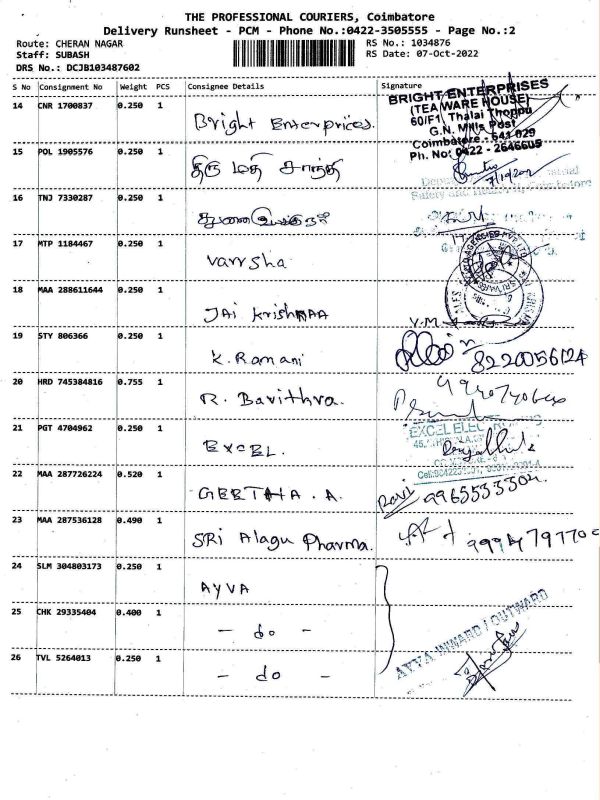 THE PROFESSIONAL COURIERS, Coimbatore
Delivery Runsheet - PCM - Phone No.:0422-3505555 - Page No.:2
Route: CHERAN NAGAR
RS No.: 1034876
Staff: SUBASH
RS Date: 07-Oct-2022
DRS No.: DCJB103487602
S No Consignment No Weight PCS Consignee Details Signature
14 CNR 1700837 0.250 1 Bright Enterprices.
BRIGHT ENTERPRISES
(TEA WARE HOUSE)
60/F1, Thalai Thoppu
G.N. Mills Post
Coimbatore - 641 029
Ph. No: 0422 - 2646605
15 POL 1905576 0.250 1 திரு மதி சாந்தி
7/10/2022
16 TNJ 7330287 0.250 1
17 MTP 1184467 0.250 1 Varrsha
18 MAA 288611644 0.250 1 JAi KrishNAA
V.M
19 STY 806366 0.250 1 K. Ramani
8220056124
20 HRD 745384816 0.755 1 R. Bavithra.
21 PGT 4704962 0.250 1 EXCEL.
22 MAA 287726224 0.520 1 GEETHA . A
Ravi 9965533302.
23 MAA 287536128 0.490 1 SRi Alagu Pharma.
24 SLM 304803173 0.250 1 AYVA
25 CHK 29335404 0.400 1 - do -
AYVA INWARD / OUTWARD
26 TVL 5264013 0.250 1 - do -